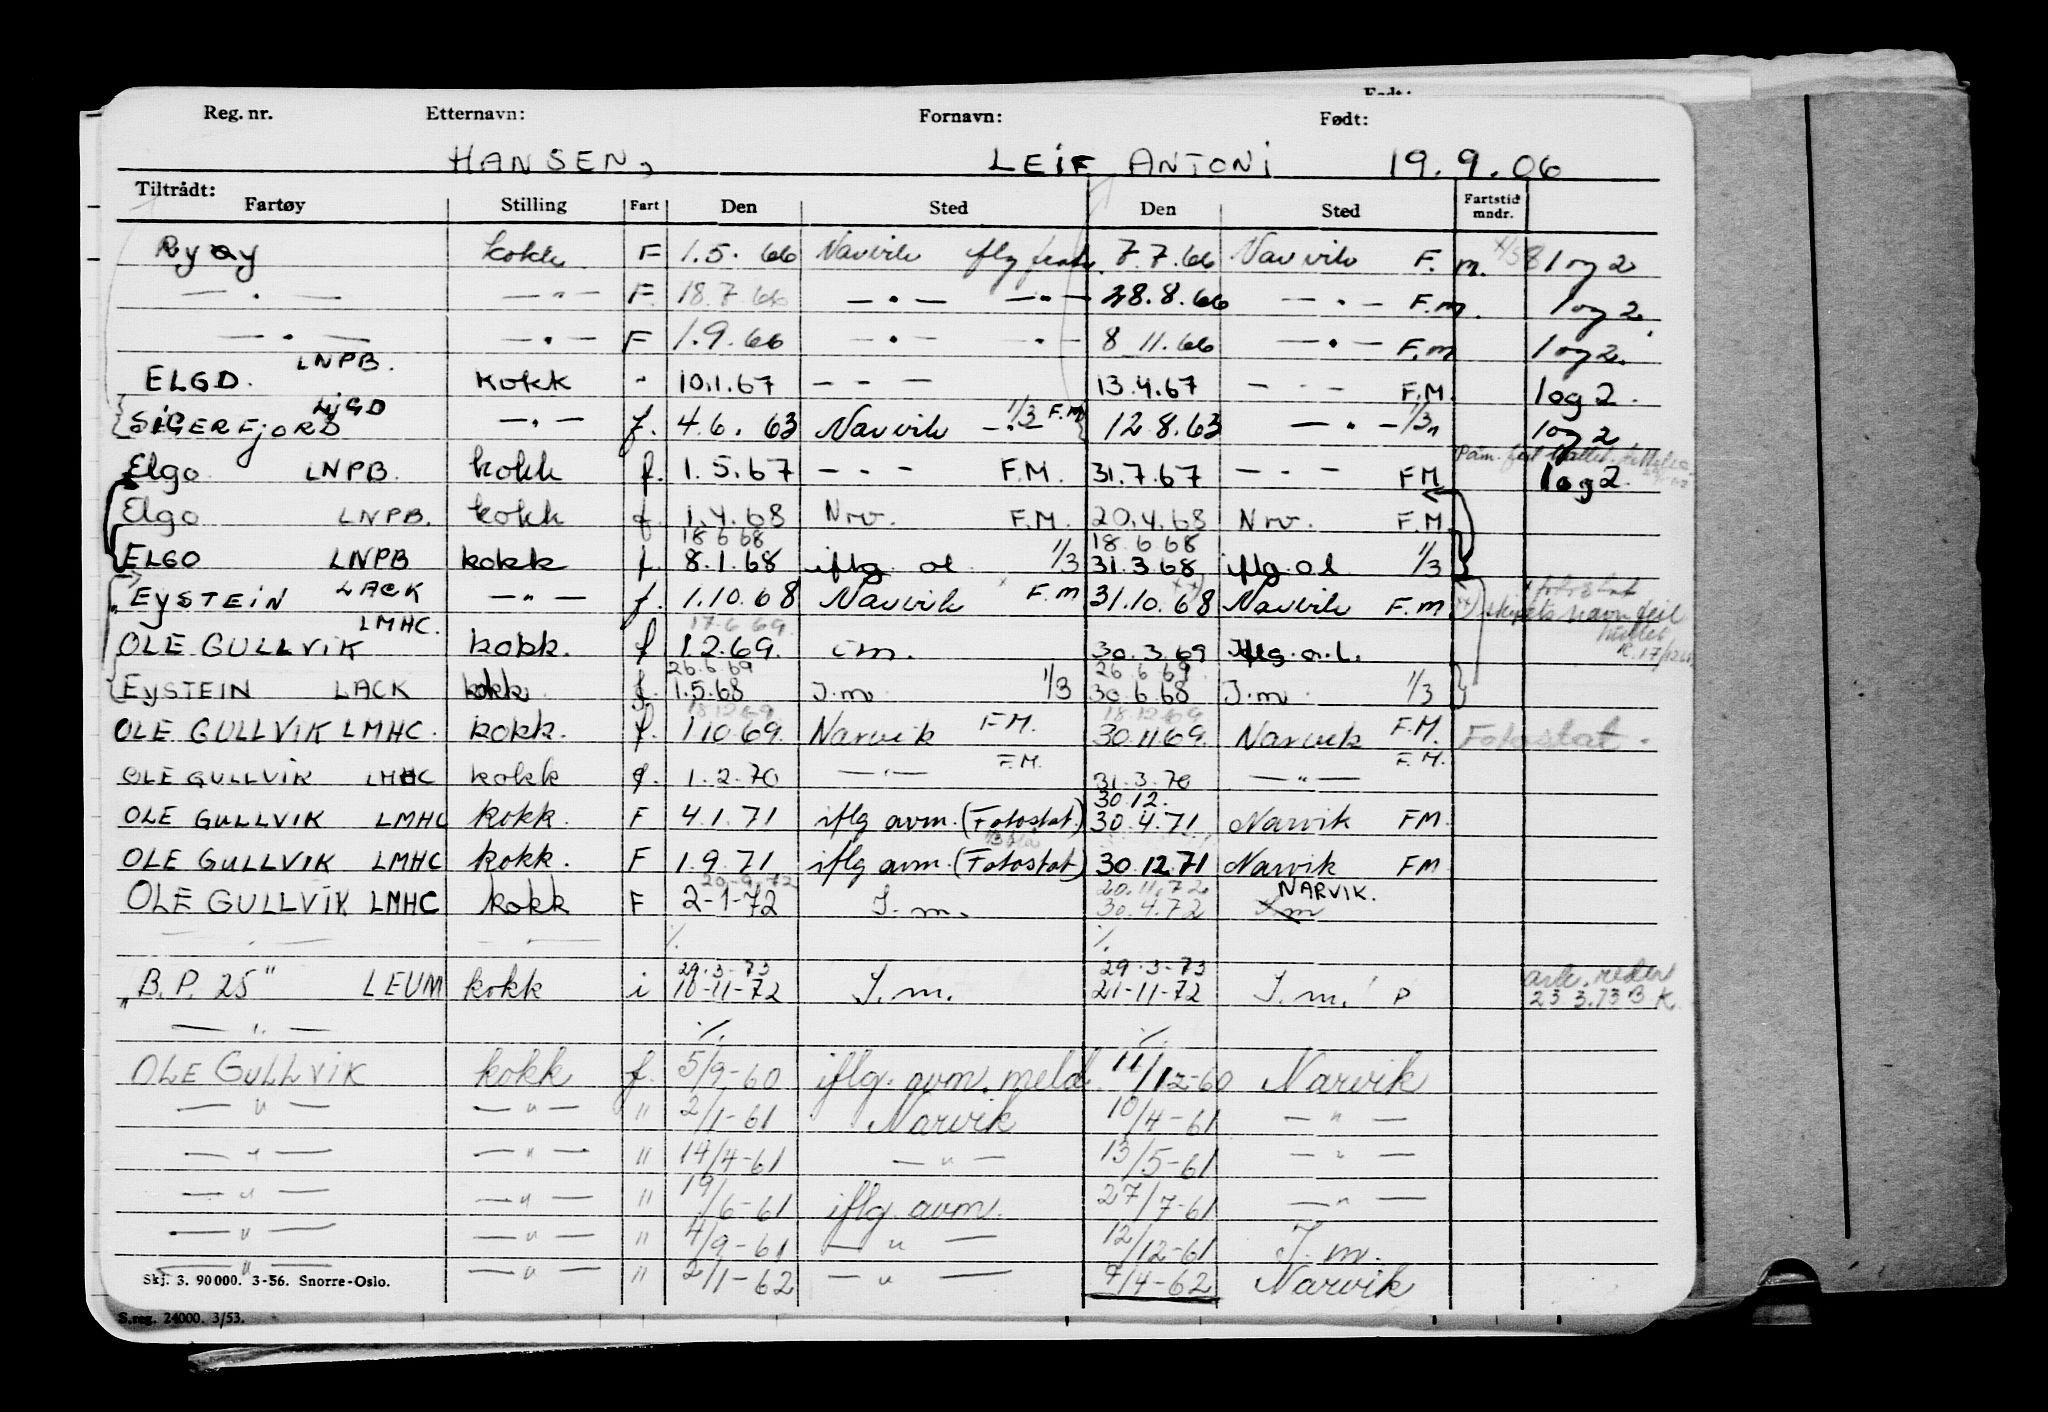 Født:
Reg. nr. Etternavn: Fornavn: Født:
HANSEN, LEIF ANTONI 19.9.06
Tiltrådt:
Fartøy Stilling Fart Den Sted Den Sted Fartstid mndr.
Ryøy kokk F 1.5.66 Narvik 7.7.66 Narvik F.m. 1 og 2
— " — — " — F. 18.7.66 — " — — " — 28.8.66 — " — F.m. 1 og 2
— " — — " — F 1.9.66 — " — — " — 8.11.66 — " — F.m 1 og 2.
ELGO. LNPB. kokk " 10.1.67 — — — 13.4.67 — — — F.M. 1 og 2.
SIGERFJORD LJGD — " — f. 4.6.63 Narvik — " — 1/3 F.M 12.8.63 — " — 1/3 1 og 2
Elgo LNPB. kokk f. 1.5.67 — — — F.M. 31.7.67 — — — FM 1 og 2.
Elgo LNPB. kokk f. 1.4.68 Nrv. F.M. 20.4.68 Nrv. F.M.
18.6.68 18.6.68
ELGO LNPB kokk f. 8.1.68 iflg. ol 1/3 31.3.68 iflg. ol 1/3
"EySTEIN LACK — " — f. 1.10.68 Narvik F.m 31.10.68 Narvik F.m skipets navn feil
17.6.69
OLE GULLVIK LMHC. kokk. f 1.2.69. i m. 30.3.69 Iflg. o.l.
26.6.69 26.6.69
EySTEIN LACK kokk f. 1.5.68 I.m. 1/3 30.6.68 I.m. 1/3
18.12.69 18.12.69
OLE GULLVIK LMHC. kokk. f. 1.10.69. Narvik F.M. 30.11.69. Narvik F.M. Fotostat.
OLE GULLVIK LMHC kokk f. 1.2.70 — " — F.M. 31.3.70 — " — F.M.
30.12.
OLE GULLVIK LMHC kokk. F 4.1.71 iflg avm. (Fotostat.) 30.4.71 Narvik FM.
OLE GULLVIK LMHC kokk. F 1.9.71 iflg avm. (Fotostat) 30.12.71 Narvik FM
20-9-72 20.11.72 NARVIK.
OLE GULLVIK LMHC kokk F 2-1-72 I.m. 30.4.72 I m
— " — — " — %. %.
29-3-73 29-3-73
"B.P. 25" LEUM kokk i 10-11-72 I.m. 21-11-72 I.m. P 23.3.73 B K.
— " — %. %.
OLE GULLVIK kokk f. 5/9-60 iflg. avm. meld. 11/12-60 Narvik
— " — — " — " 2/1-61 Narvik 10/4-61 — " —
— " — — " — " 14/4-61 — " — 13/5-61 — " —
— " — — " — " 19/6-61 iflg. avm. 27/7-61 — " —
— " — — " — " 4/9-61 — " — 12/12-61 I.m.
— " — — " — " 2/1-62 — " — 9/4-62 Narvik
Skj. 3. 90000. 3-56. Snorre-Oslo.
S.reg. 24000. 3/53.